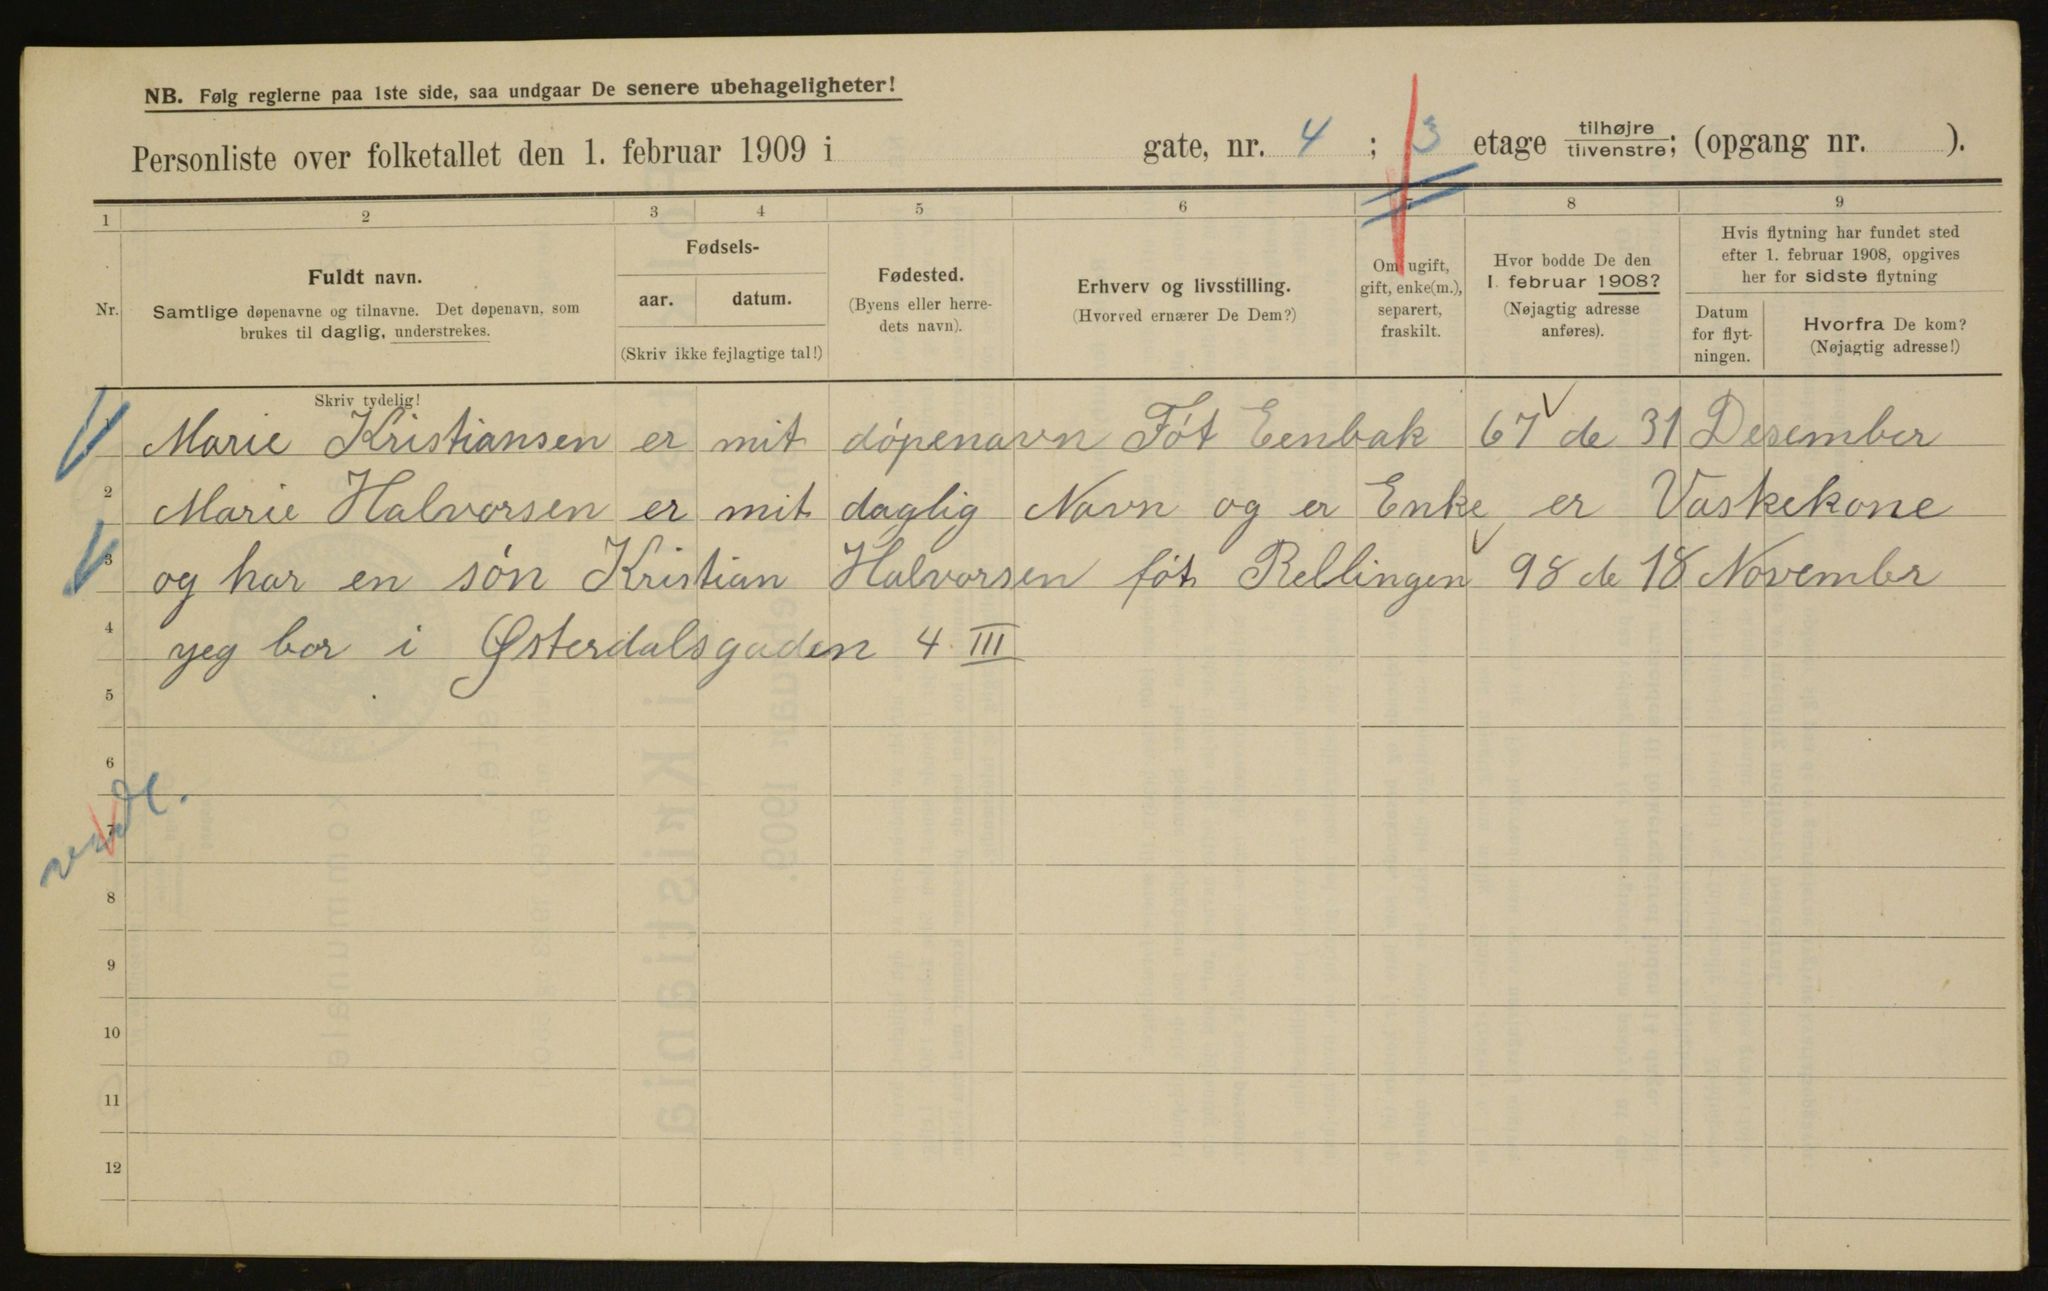 NB. Følg reglerne paa 1ste side, saa undgaar De senere ubehageligheter!
Personliste over folketallet den 1. februar 1909 i gate, nr. 4 ; 3 etage tilhøjre tilvenstre; (opgang nr. ).
1 2 3 4 5 6 7 8 9
Nr.
Fuldt navn.
Samtlige døpenavne og tilnavne. Det døpenavn, som
brukes til daglig, understrekes.
Skriv tydelig!
Fødsels-
aar. datum.
(Skriv ikke fejlagtige tal!)
Fødested.
(Byens eller herre-
dets navn).
Erhverv og livsstilling.
(Hvorved ernærer De Dem?)
Om ugift,
gift, enke(m.),
separert,
fraskilt.
Hvor bodde De den
1. februar 1908?
(Nøjagtig adresse
anføres).
Hvis flytning har fundet sted
efter 1. februar 1908, opgives
her for sidste flytning
Datum
for flyt-
ningen.
Hvorfra De kom?
(Nøjagtig adresse!)
1 Marie Kristiansen er mit döpenavn Föt Eenbak 67 de 31 Desember
2 Marie Halvorsen er mit daglig Navn og er Enke er Vaskekone
3 og har en sön Kristian Halvorsen föt Rellingen 98 de 18 November
4 yeg bor i Østerdalsgaden 4 III
5
6
7
8
9
10
11
12